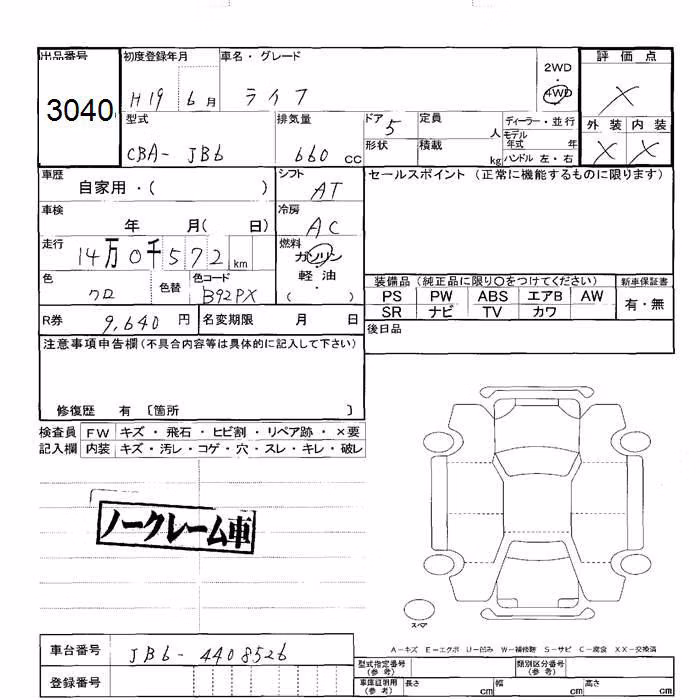 出品番号 初度登録年月 車名・グレード 2WD ・ 4WD 評価点
3040 H19 6月 ライフ X
型式 排気量 ドア 5 定員 人 ディーラー・並行 外装 内装
CBA- JB6 660 CC 形状 積載 kg モデル年式 年 ハンドル 左・右 X X
車歴 自家用・( ) シフト AT セールスポイント (正常に機能するものに限ります)
車検 年 月( 日) 冷房 AC
走行 14万0千572 km 燃料 ガソリン・軽油 ( )
色 クロ 色替 色コード B92PX
装備品 (純正品に限り○をつけてください) 新車保証書
PS PW ABS エアB AW 有・無
SR ナビ TV カワ
R券 9,640 円 名変期限 月 日 後日品
注意事項申告欄 (不具合内容等は具体的に記入して下さい)
修復歴 有 〔箇所 〕
検査員 FW キズ・飛石・ヒビ割・リペア跡・×要
記入欄 内装 キズ・汚レ・コゲ・穴・スレ・キレ・破レ
ノークレーム車
スペア
A-キズ E-エクボ U-凹み W-補修跡 S-サビ C-腐食 XX-交換済
車台番号 JB6-4408526 型式指定番号 (参考) 類別区分番号 (参考)
登録番号 車庫証明用 (参考) 長さ cm 幅 cm 高さ cm